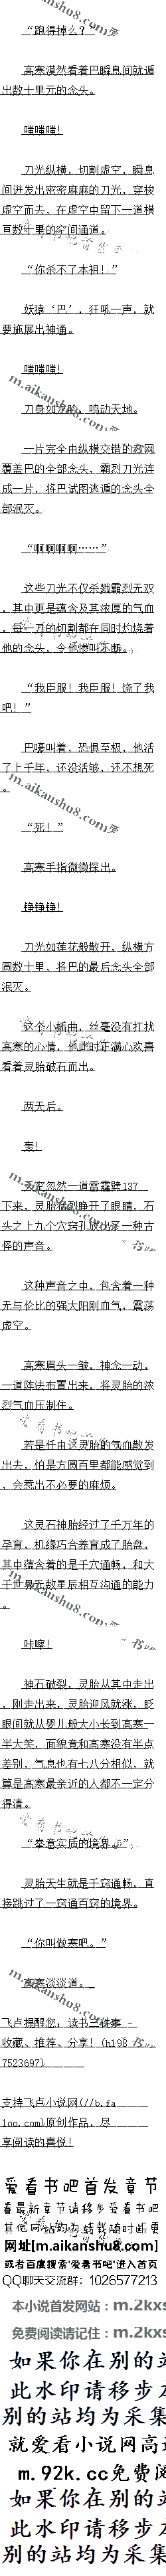 “跑得掉么？”
高寒漠然看着巴瞬息间就遁
出数十里元的念头。
嗤嗤嗤！
刀光纵横，切割虚空，瞬息
间迸发出密密麻麻的刀光，穿梭
虚空而去，在虚空中留下一道横
亘数十里的空间通道。
“你杀不了本祖！”
妖猿‘巴’，狂吼一声，就
要施展出神通。
嗤嗤嗤！
刀身如龙吟，鸣动天地。
一片完全由纵横交错的刀网
覆盖巴的全部念头，霸烈刀光连
成一片，将巴试图逃遁的念头全
部泯灭。
“啊啊啊啊……”
这些刀光不仅杀戮霸烈无双
，其中更是蕴含及其浓厚的气血
，每一刀的切割都在同时灼烧着
他的念头，令他惨叫不断。
“我臣服！我臣服！饶了我
吧！”
巴嚎叫着，恐惧至极，他活
了上千年，还没活够，还不想死
。
“死！”
高寒手指微微探出。
铮铮铮！
刀光如莲花般散开，纵横方
圆数十里，将巴的最后念头全部
泯灭。
这个小插曲，丝毫没有打扰
高寒的心情，他此时正满心欢喜
看着灵胎破石而出。
两天后。
轰！
天空忽然一道雷霆劈137
下来，灵胎猛烈睁开了眼睛，石
头之上九个穴窍孔放出了一种古
怪的声音。
这种声音之中，包含着一种
无与伦比的强大阳刚血气，震荡
虚空。
高寒眉头一皱，神念一动，
一道阵法布置出来，将灵胎的浓
烈气血压制住。
若是任由这灵胎的气血散发
出去，怕是方圆百里都能感觉到
，会惹出不必要的麻烦。
这灵石神胎经过了千万年的
孕育，机缘巧合养育成了胎盘，
其中蕴含着的是千穴通畅，和大
千世界无数星辰相互沟通的能力
。
咔嚓！
神石破裂，灵胎从其中走出
，刚走出来，灵胎迎风就涨，眨
眼间就从婴儿般大小长到高寒一
半大笑，面貌竟和高寒没有半点
差别，气息也有七八分相似，就
算是高寒最亲近的人都不一定分
得清。
“拳意实质的境界。”
灵胎天生就是千窍通畅，直
接跳过了一窍通百窍的境界。
“你叫做寒吧。”
高寒淡淡道。
飞卢提醒您：读书三件事 -
收藏、推荐、分享！(h198
7523697)
支持飞卢小说网(//b.fa
loo.com)原创作品，尽
享阅读的喜悦！
爱看书吧首发章节
看最新章节请移步爱看书吧
网址[m.aikanshu8.com]
或者百度搜索“爱看书吧”进入首页
QQ聊天交流群：1026577213
本小说首发网站：m.2kxs
免费阅读请记住：m.2kxs
如果你在别的站
此水印请移步
别的站均为采集
就爱看小说网高
m.92k.cc免费阅
如果你在别的站
此水印请移步
别的站均为采集